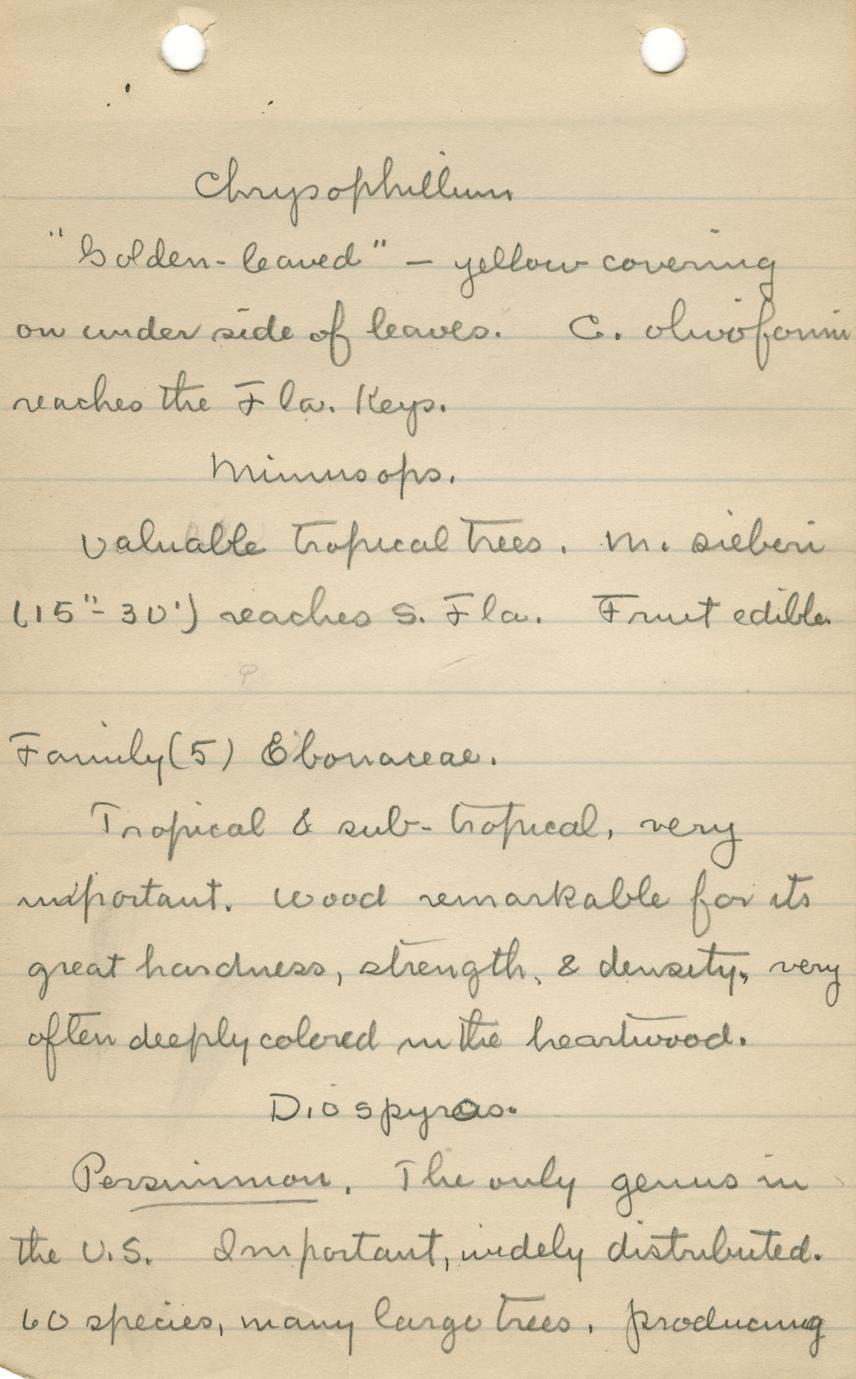 Chrysophillum
"Golden-leaved" — yellow covering
on under side of leaves. C. olivoformi
reaches the Fla. Keys.
Mimusops.
Valuable tropical trees. M. sieberi
(15"-30') reaches S. Fla. Fruit edible.
Family (5) Ebonaceae.
Tropical & sub-tropical, very
important. Wood remarkable for its
great hardness, strength, & density, very
often deeply colored in the heartwood.
Diospyros.
Persimmon. The only genus in
the U.S. Important, widely distributed.
60 species, many large trees, producing